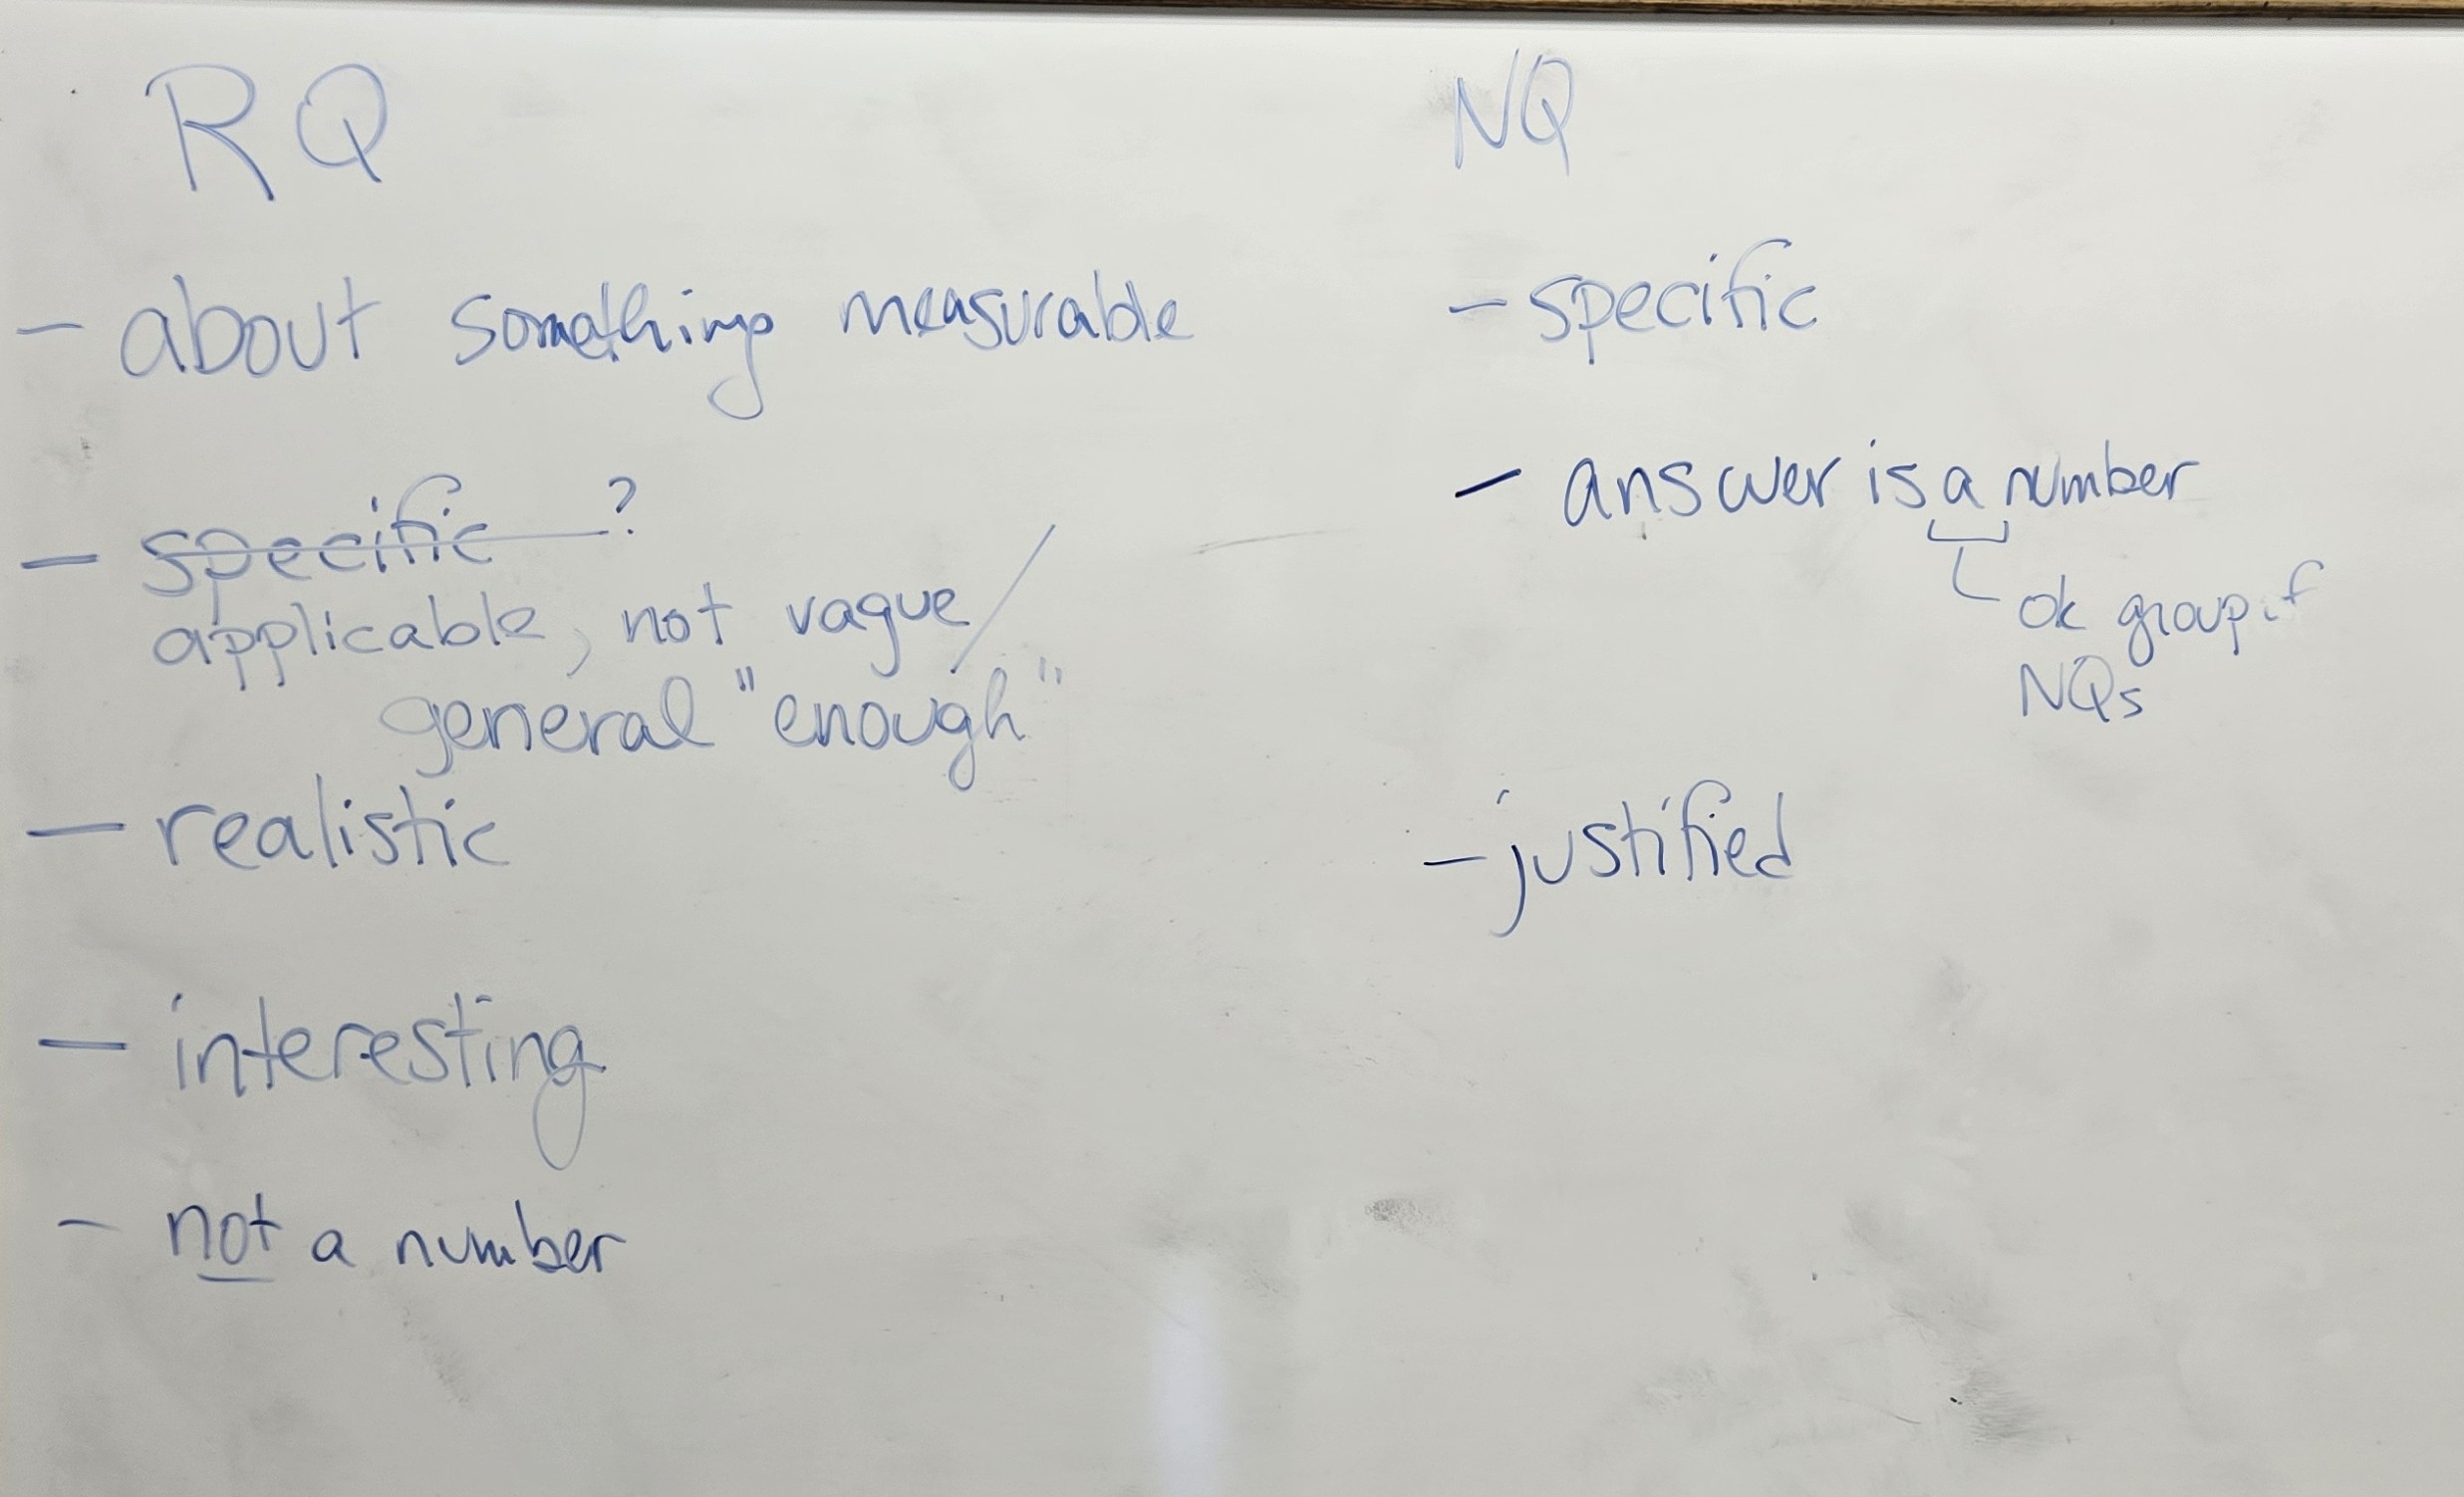 RQ
- about something measurable
- specific ?
applicable, not vague /
general "enough"
- realistic
- interesting
- not a number
NQ
- specific
- answer is a number
ok group of
NQs
- justified